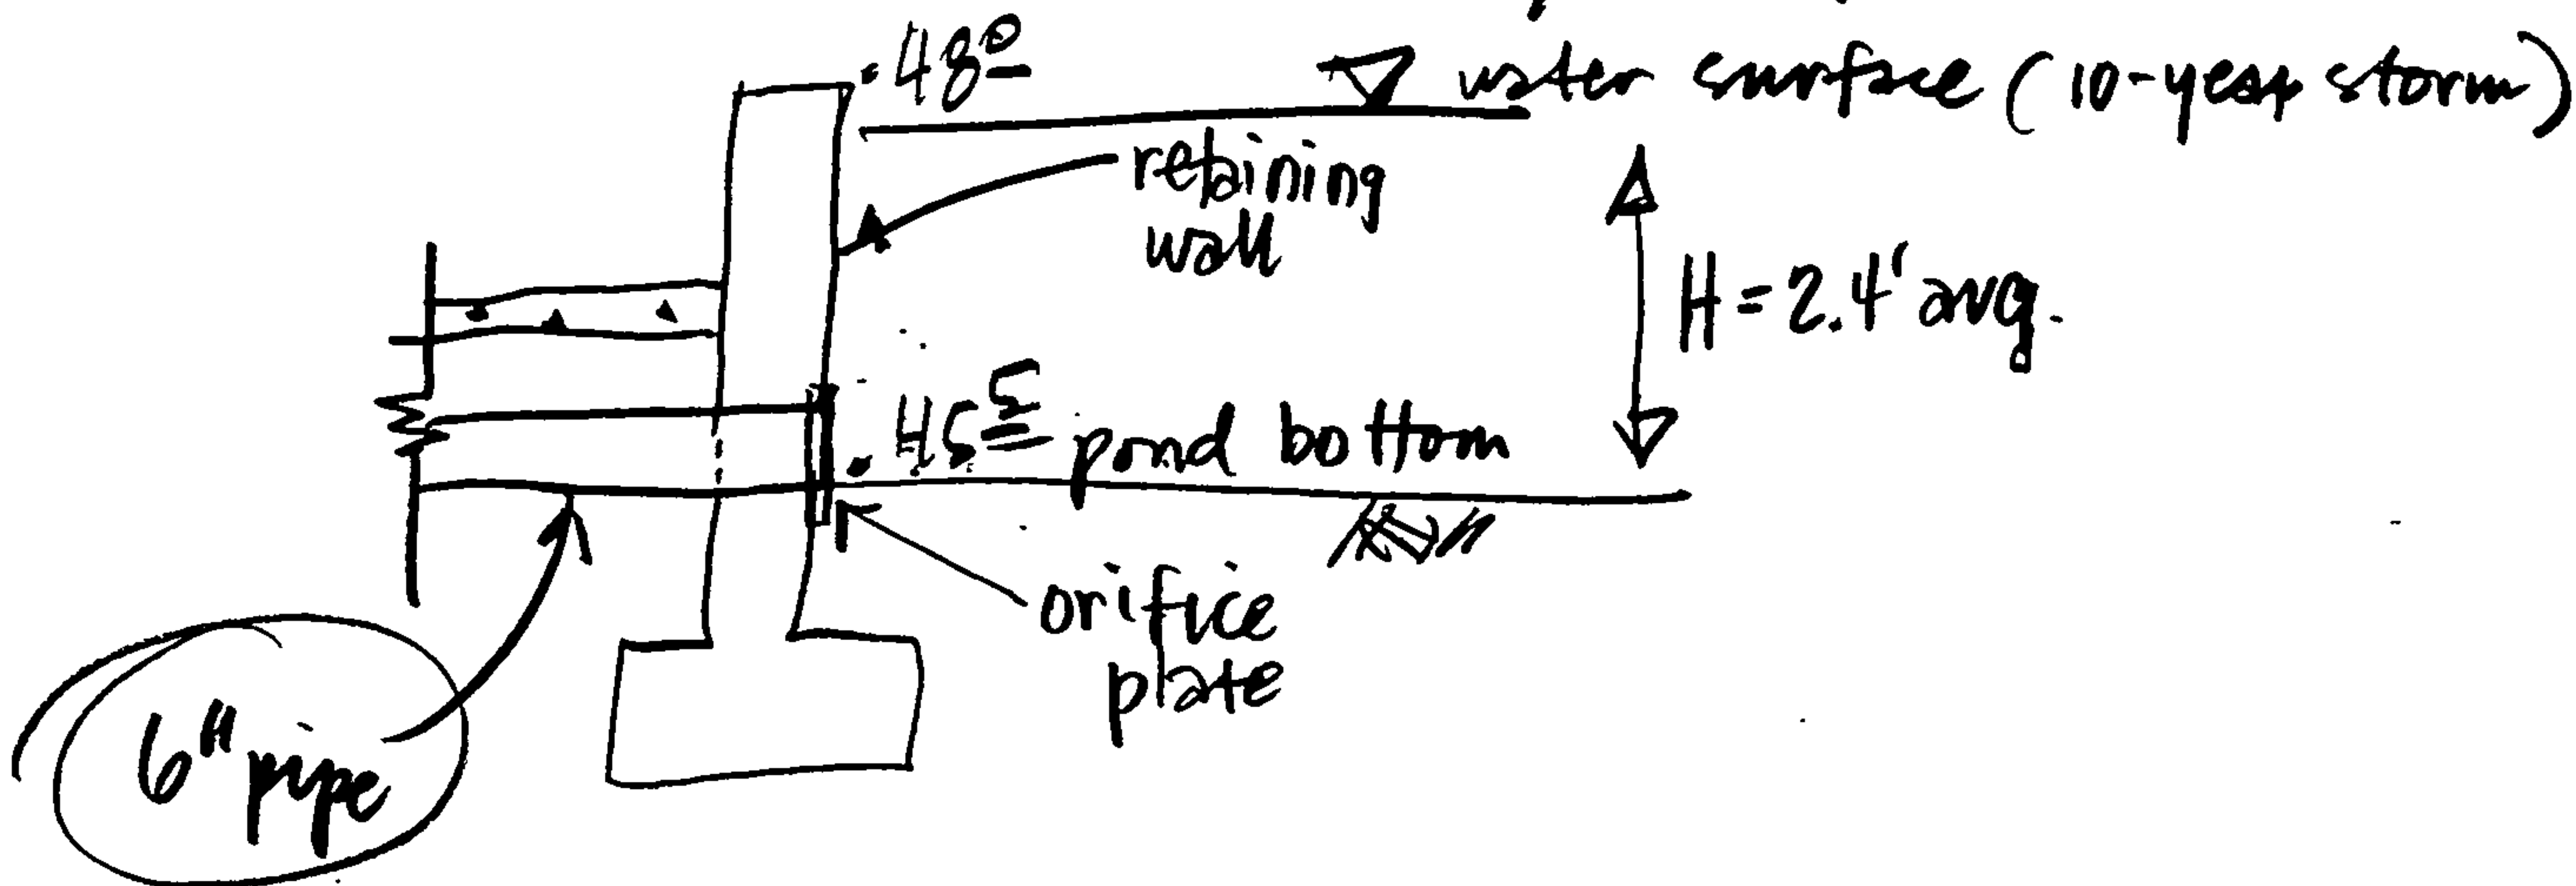 .48º
water surface (10-year storm)
retaining
wall
H = 2.4' avg.
.45⁵ pond bottom
orifice
plate
6" pipe